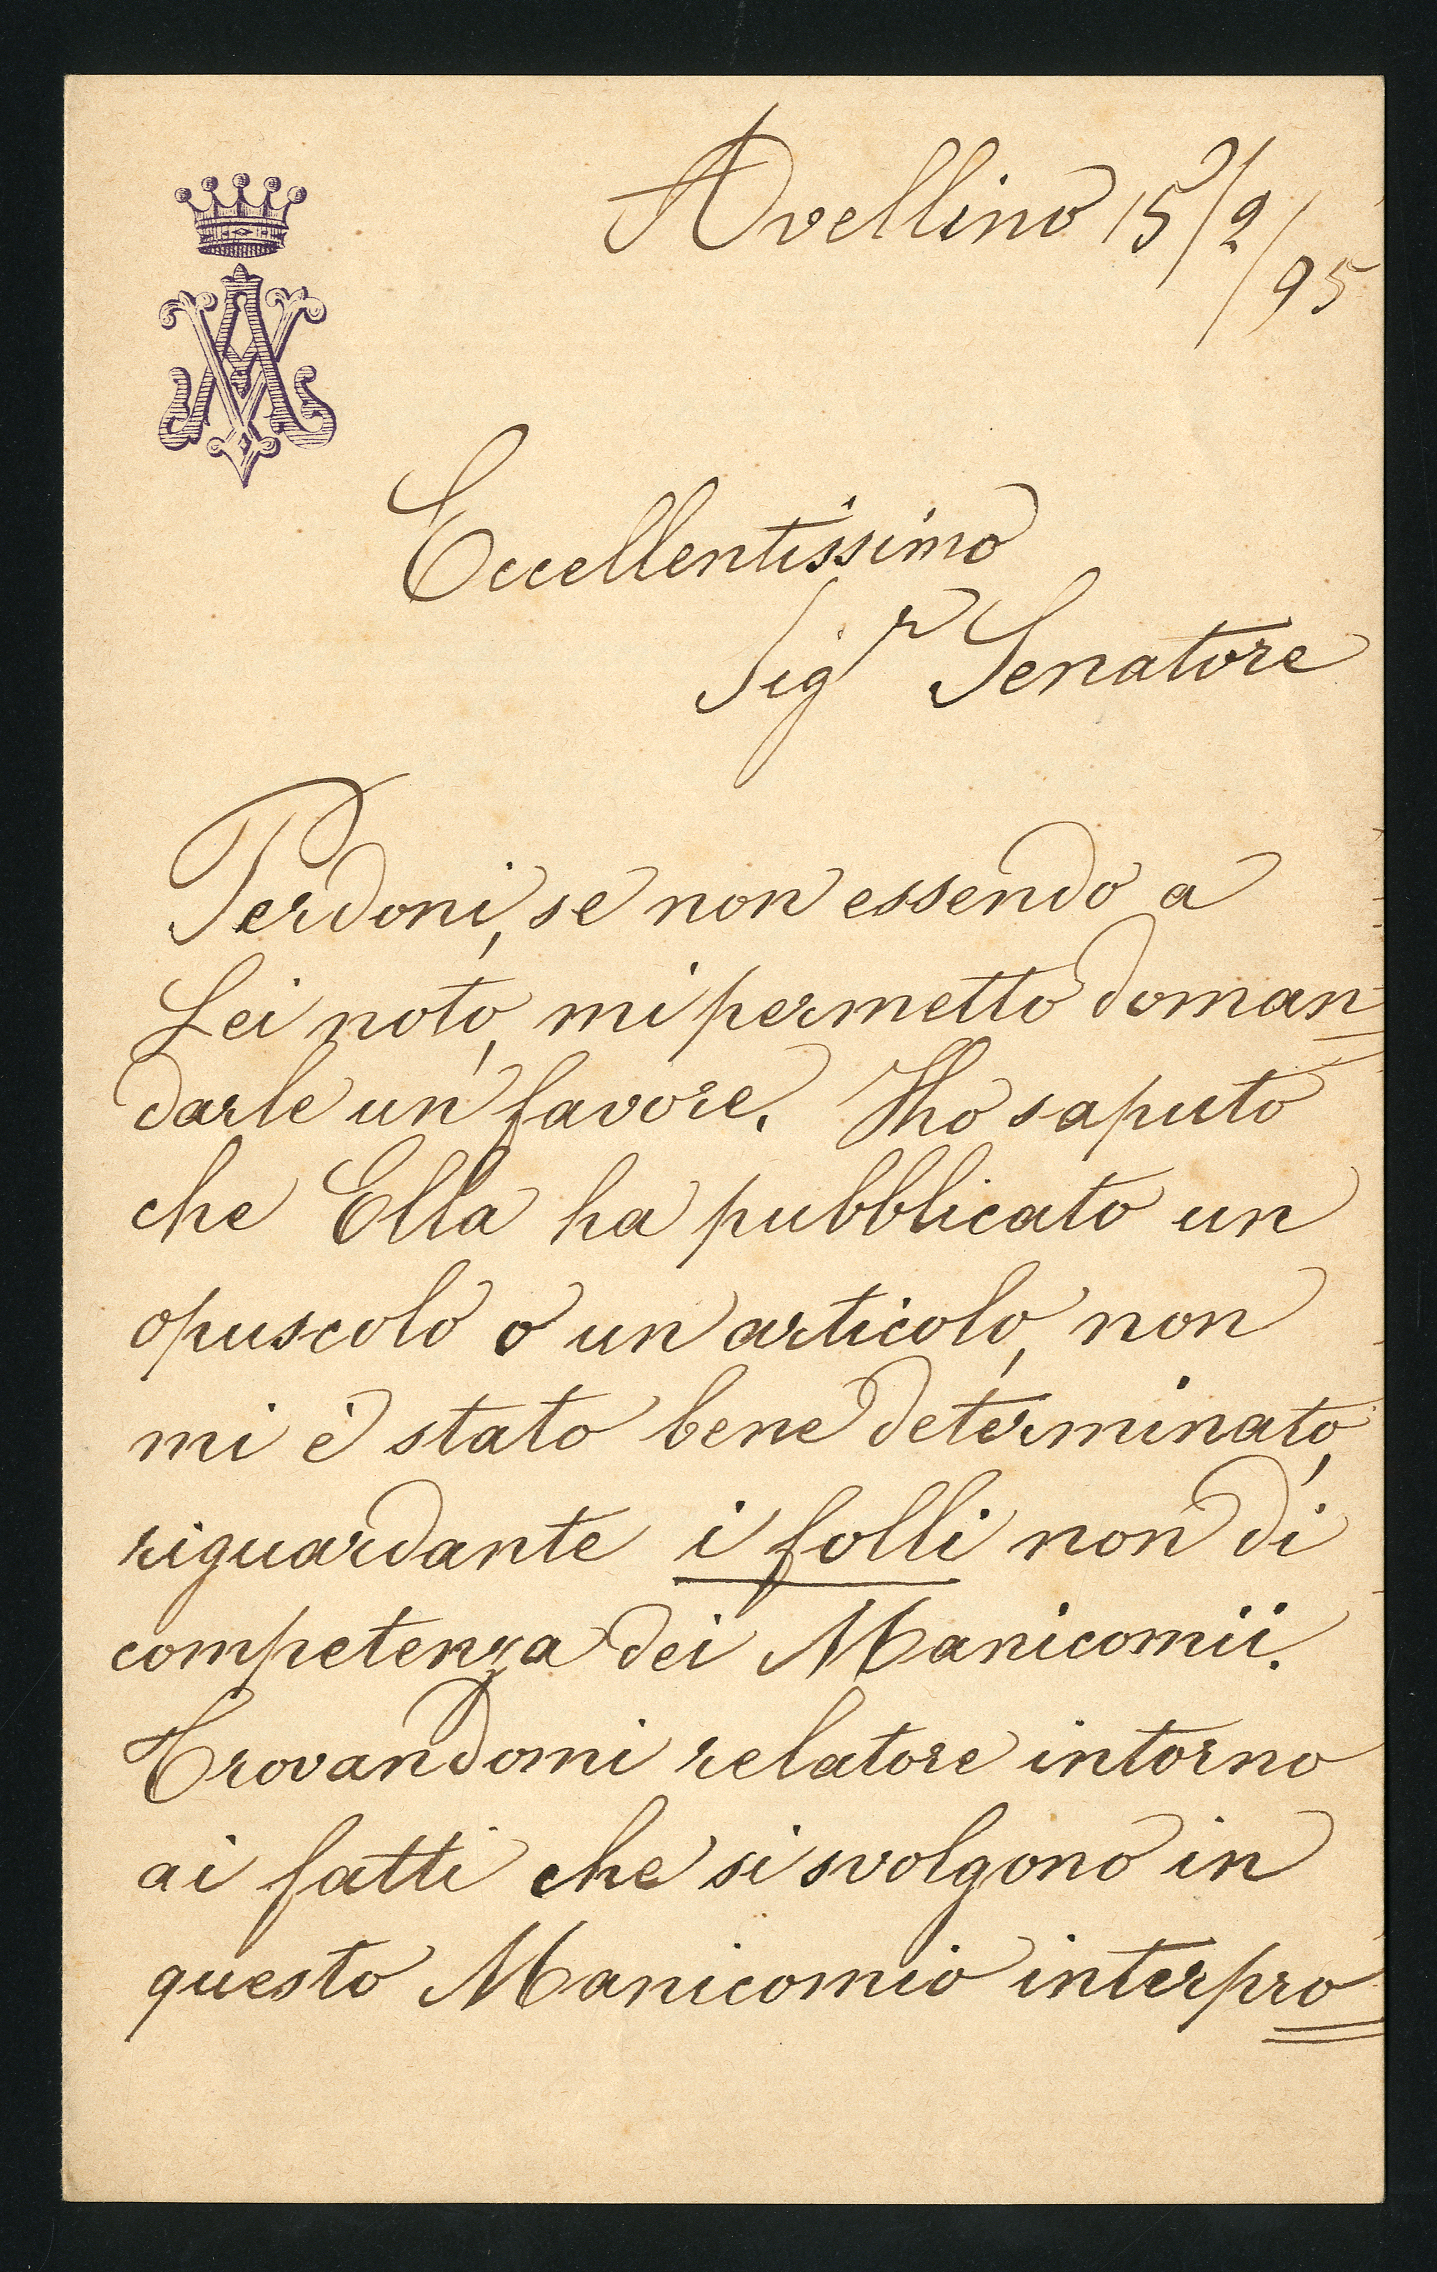 Avellino 15/2/95
Eccellentissimo
Sigr Senatore
Perdoni, se non essendo a
Lei noto, mi permetto doman=
darle un favore. Ho saputo
che Ella ha pubblicato un
opuscolo o un articolo, non
mi è stato bene determinato,
riguardante i folli non di
competenza dei Manicomii.
Trovandomi relatore intorno
ai fatti che si svolgono in
questo Manicomio interpro=